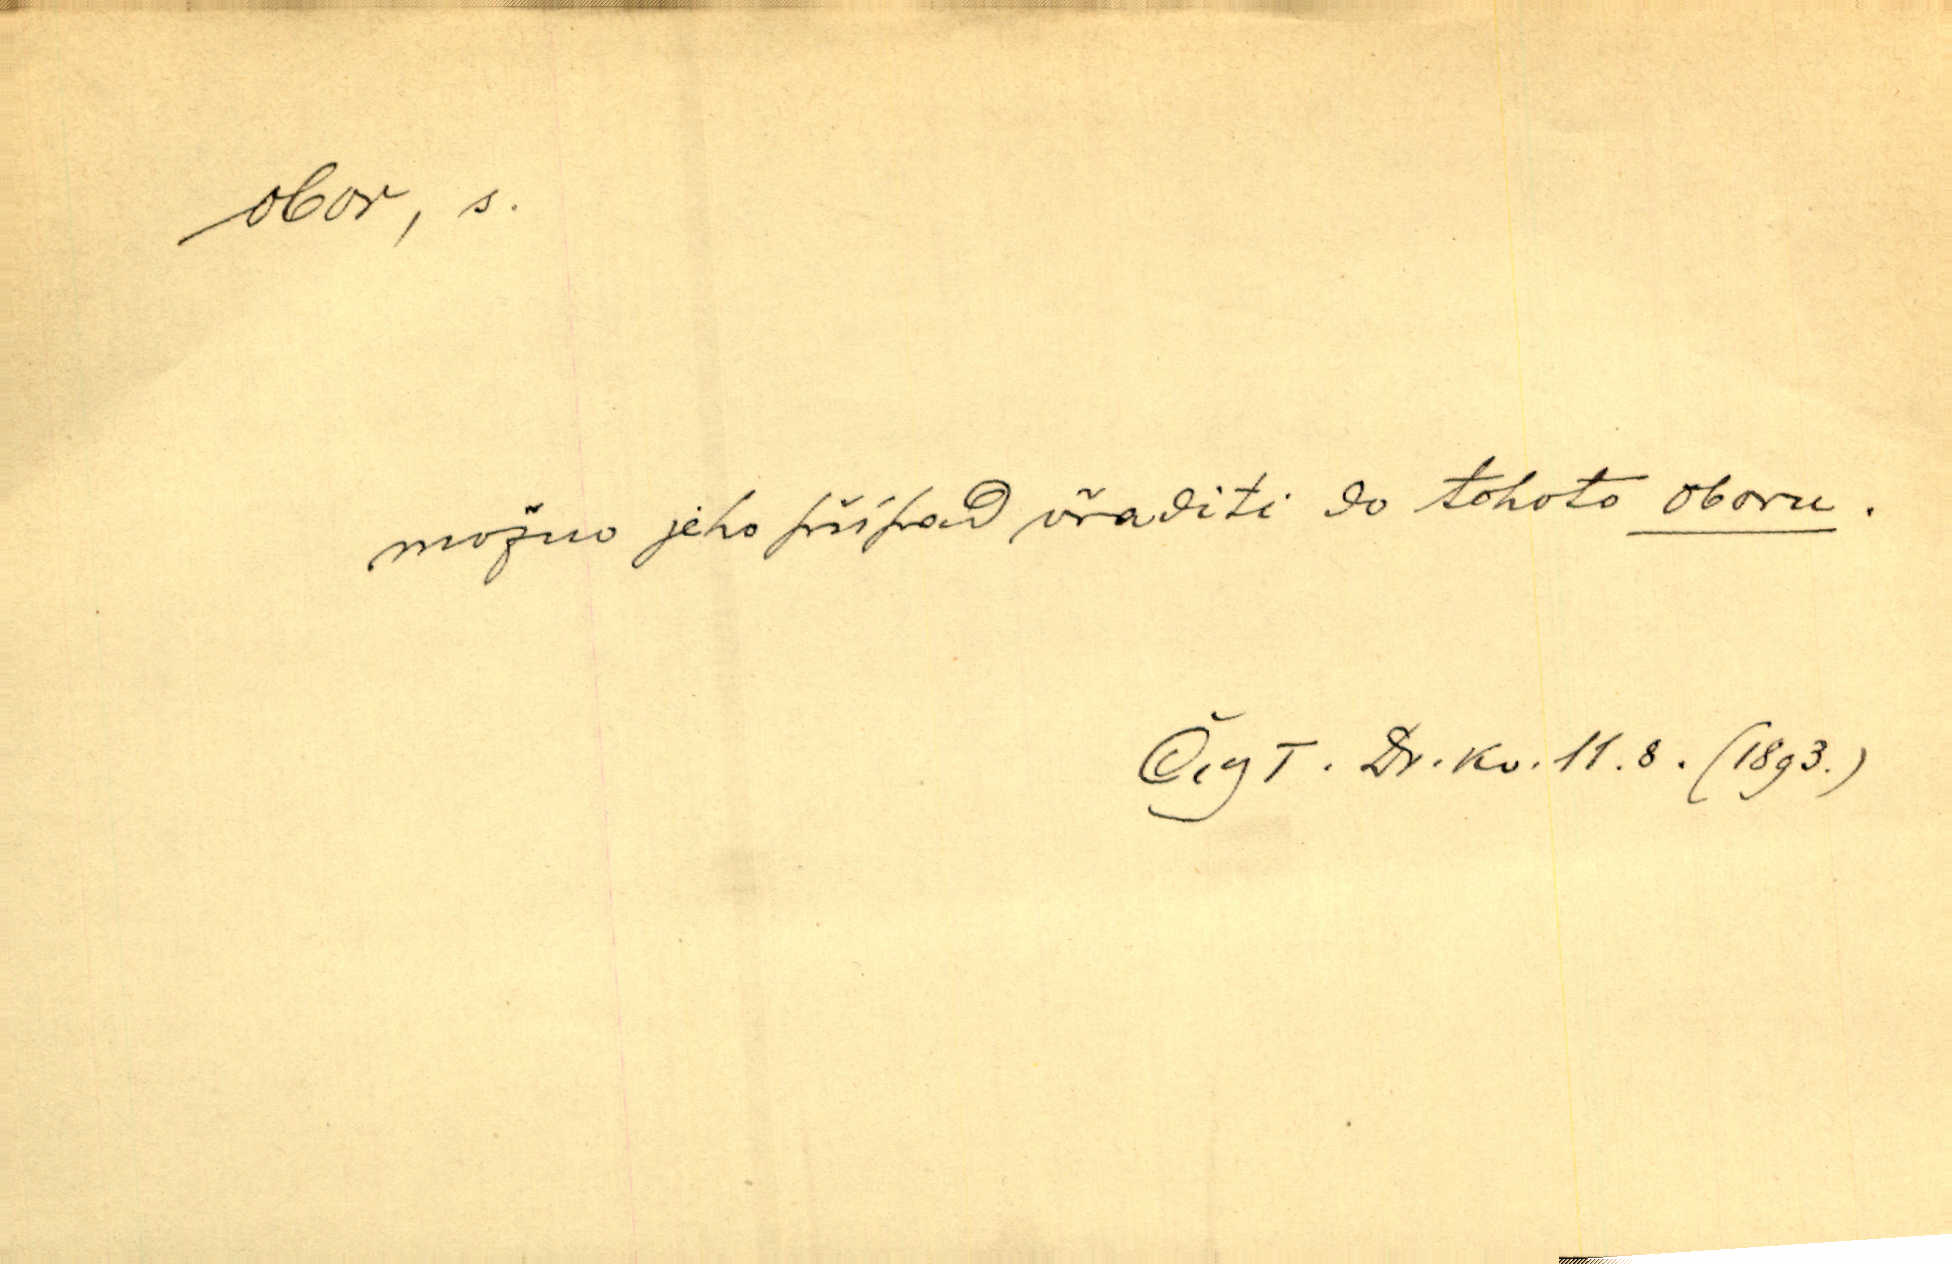 obor, s.
možno jeho případ vřaditi do tohoto oboru.
Čig T. Dr. Kv. 11. 8. (1893.)